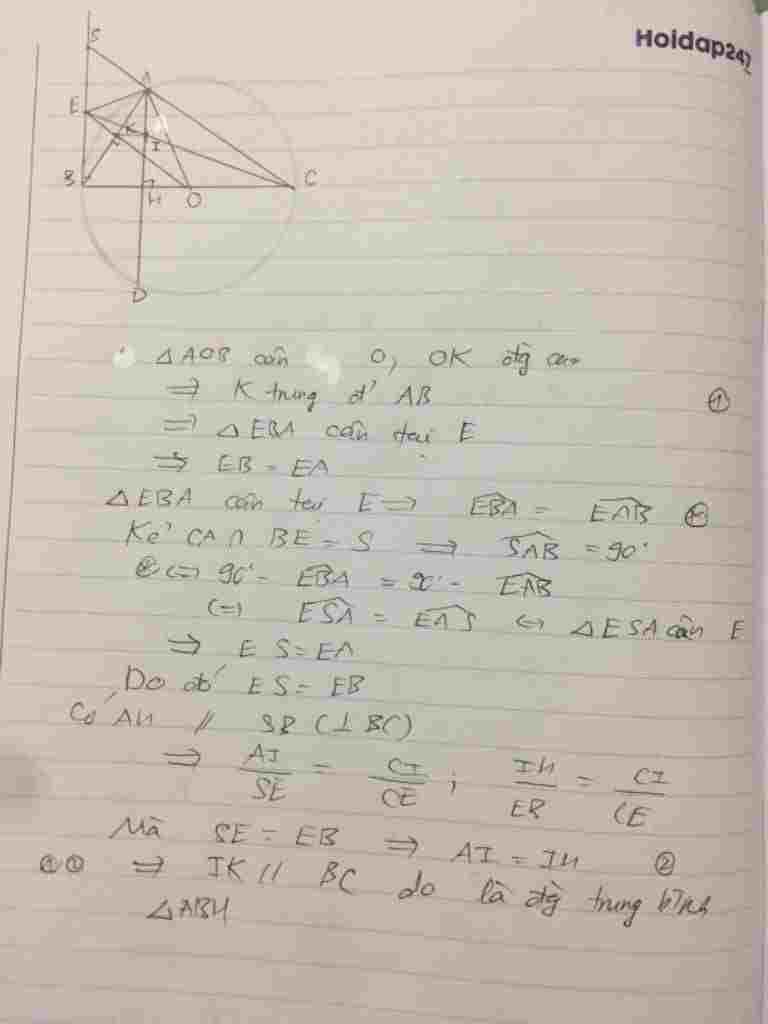 Hoidap247
S
A
E
K
I
B
H
O
C
D
△AOB cân O, OK đg cao
⇒ K trung đ' AB ①
⇒ △EBA cân tại E
⇒ EB = EA
△EBA cân tại E ⇒ \widehat{EBA} = \widehat{EAB}
Kẻ CA ∩ BE = S ⇒ \widehat{SAB} = 90°
⇔ 90° - \widehat{EBA} = 90° - \widehat{EAB}
⇔ \widehat{ESA} = \widehat{EAS} ⇔ △ESA cân E
⇒ ES = EA
Do đó ES = EB
Có AH // SB (⊥ BC)
⇒ \frac{AI}{SE} = \frac{CI}{CE} ; \frac{IH}{EB} = \frac{CI}{CE}
Mà SE = EB ⇒ AI = IH ②
⇒ IK // BC do là đg trung bình
△ABH